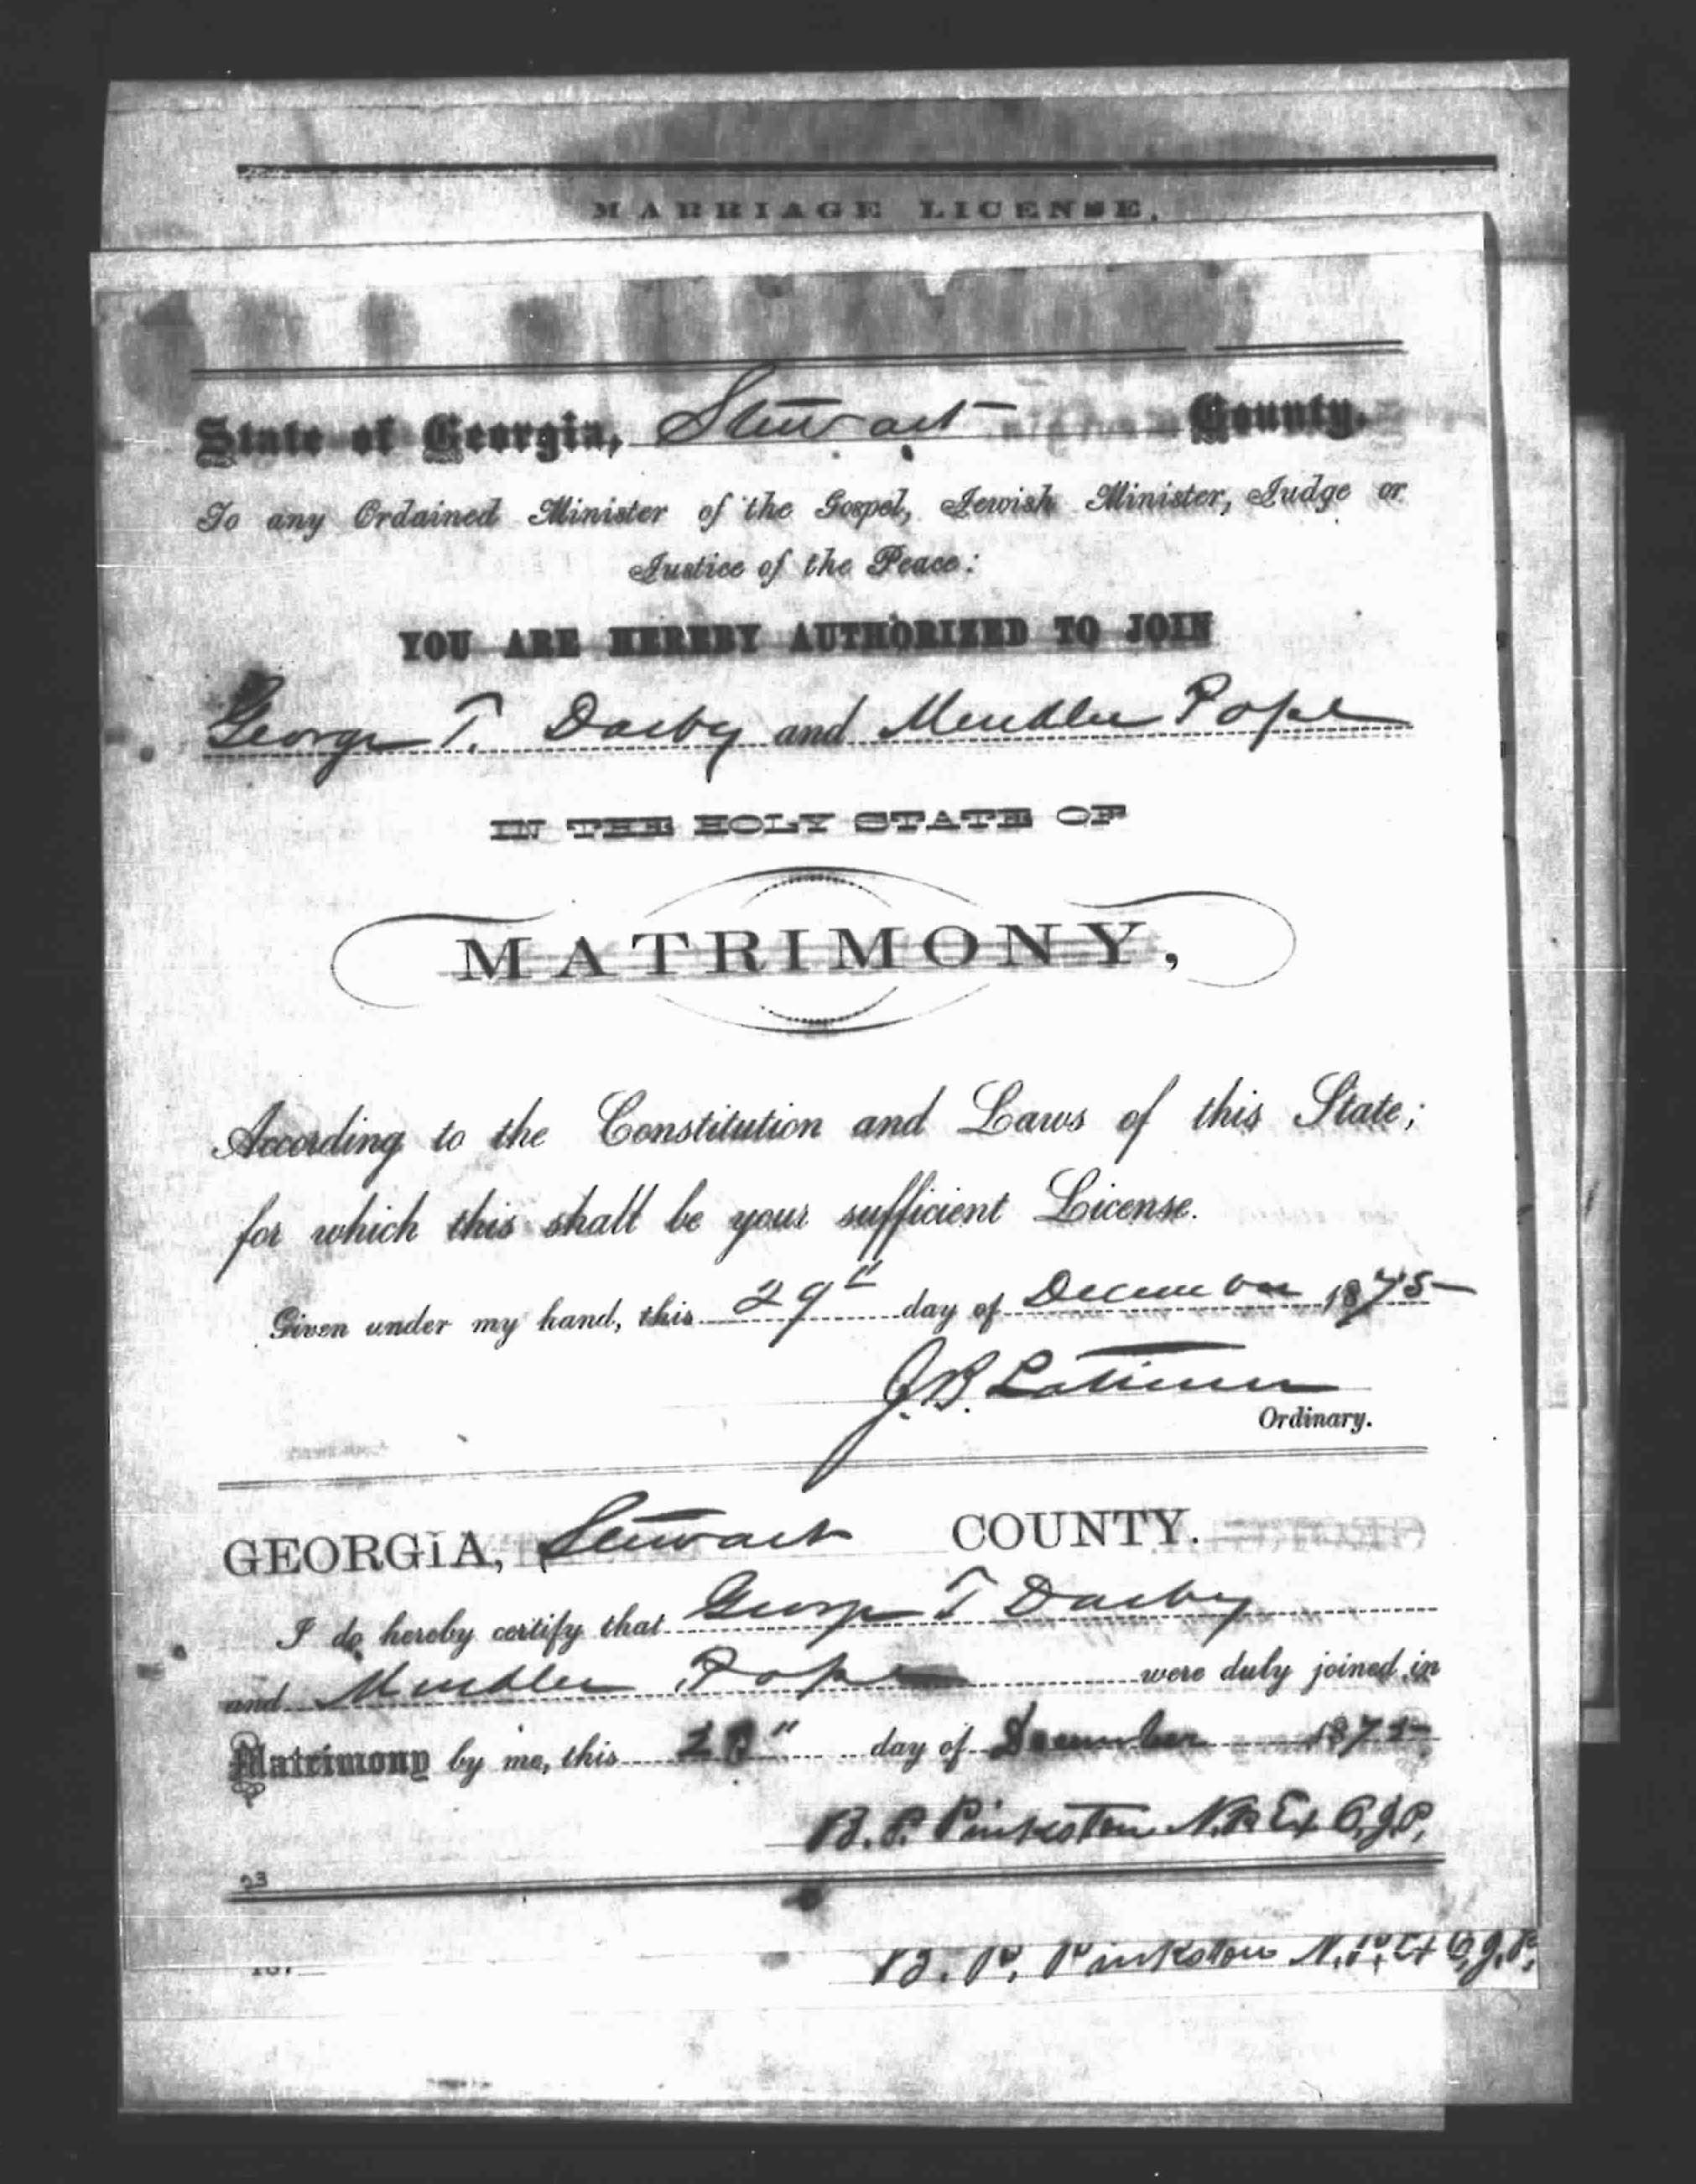 MARRIAGE LICENSE.
State of Georgia, Stewart County.
To any Ordained Minister of the Gospel, Jewish Minister, Judge or
Justice of the Peace:
YOU ARE HEREBY AUTHORIZED TO JOIN
George T. Darby and Pope
IN THE HOLY STATE OF
MATRIMONY,
According to the Constitution and Laws of this State;
for which this shall be your sufficient License.
Given under my hand, this 29th day of December 1875
J.B. Latimer
Ordinary.
GEORGIA, Stewart COUNTY.
I do hereby certify that George T Darby
and Pope were duly joined in
Matrimony by me, this day of December 1875
B. P. Pinkston N.P. Ex O, J.P,
23
B. P. Pinkston N.P. Ex O, J.P.